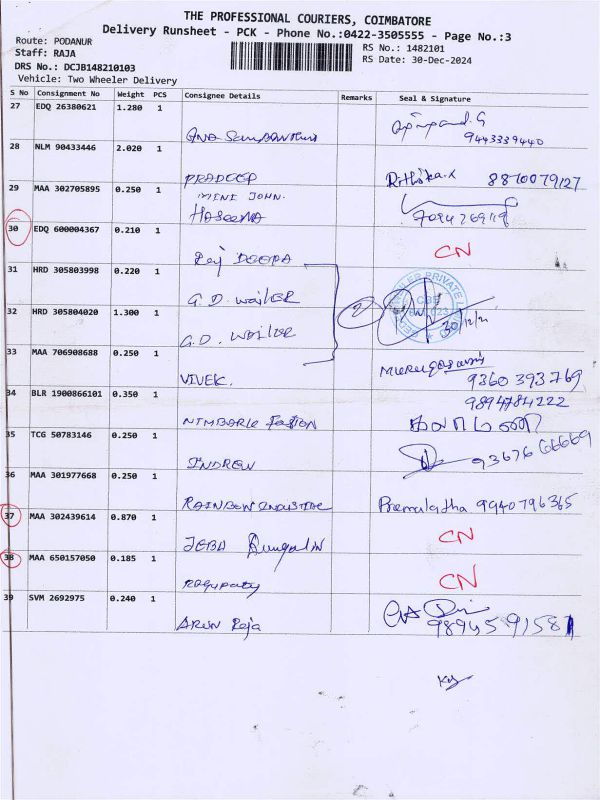 THE PROFESSIONAL COURIERS, COIMBATORE
Delivery Runsheet - PCK - Phone No.:0422-3505555 - Page No.:3
Route: PODANUR
RS No.: 1482101
Staff: RAJA
RS Date: 30-Dec-2024
DRS No.: DCJB148210103
Vehicle: Two Wheeler Delivery
S No Consignment No Weight PCS Consignee Details Remarks Seal & Signature
27 EDQ 26380621 1.280 1
9443339440
28 NLM 90433446 2.020 1
PRADEEP Rithika.k 8870079127
29 MAA 302705895 0.250 1 MINI JOHN.
HASEENA
30 EDQ 600004367 0.210 1 CN
Raj DEEPA
31 HRD 305803998 0.220 1
G.D. Wailer 2
30/12/2
32 HRD 305804020 1.300 1
G.D. Wailer
33 MAA 706908688 0.250 1
VIVEK. 9360393769
34 BLR 1900866101 0.350 1 9894784222
NIMBARK Fashion
35 TCG 50783146 0.250 1
INDREW 9367666669
36 MAA 301977668 0.250 1
RAINBOW INDUSTRIE Premalatha 9940796365
37 MAA 302439614 0.870 1 CN
JEBA
38 MAA 650157050 0.185 1 CN
Ragupathy
39 SVM 2692975 0.240 1
ARUN Raja 9894591581